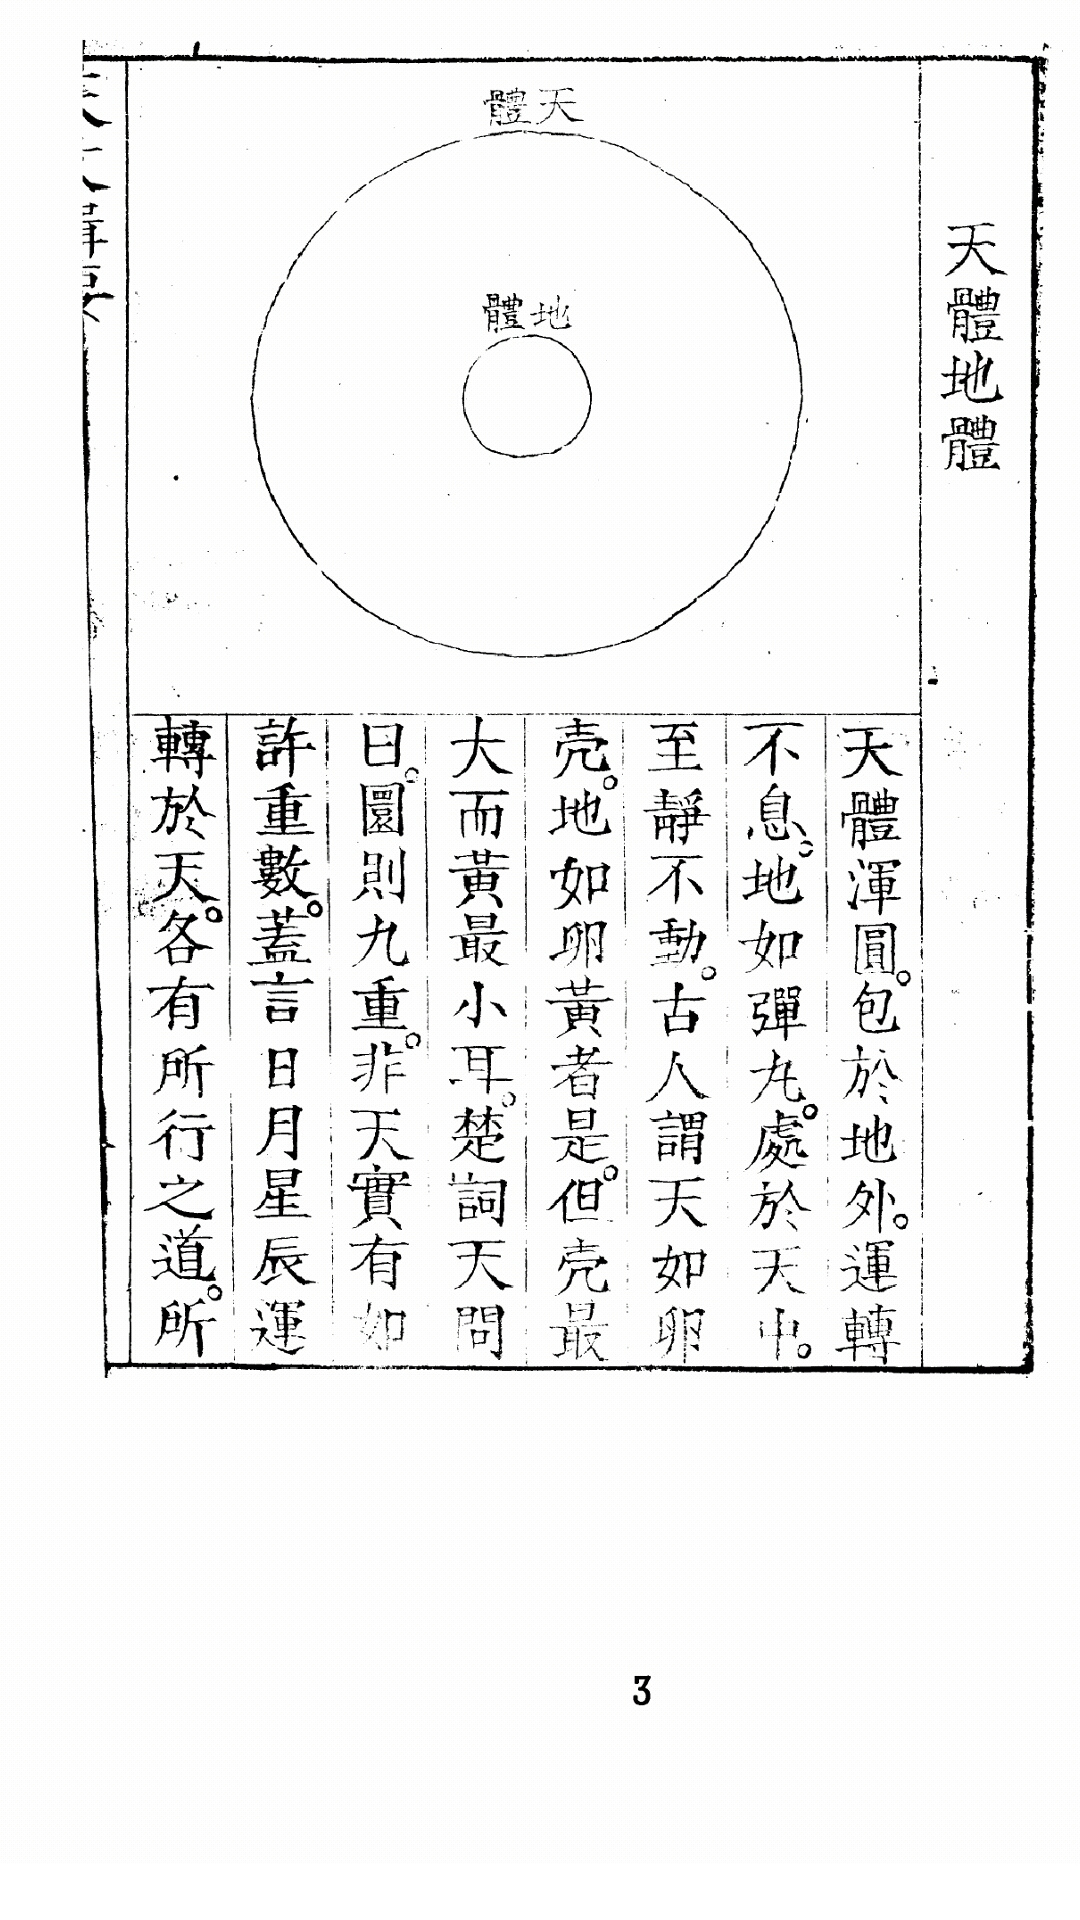 天體地體
體天
體地
天體渾圓。包於地外。運轉
不息。地如彈丸。處於天中。
至靜不動。古人謂天如卵
壳。地如卵黃者是。但壳最
大而黃最小耳。楚詞天問
曰。圜則九重。非天實有如
許重數。蓋言日月星辰運
轉於天。各有所行之道。所
3